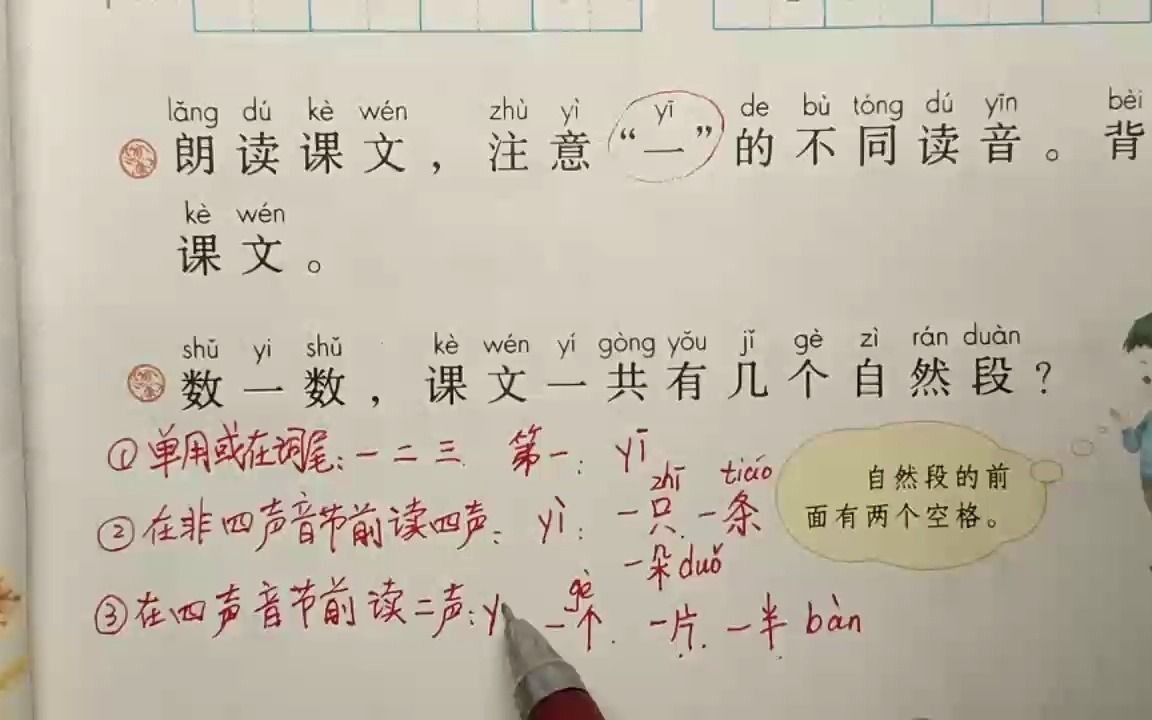 lǎng dú kè wén zhù yì yī de bù tóng dú yīn bèi
朗读课文，注意“一”的不同读音。背
kè wén
课文。
shǔ yi shǔ kè wén yí gòng yǒu jǐ gè zì rán duàn
数一数，课文一共有几个自然段？
①单用或在词尾：一 二 三 第一： yī
zhī tiáo
②在非四声音节前读四声： yì： 一只 一条
一朵 duǒ
自然段的前
面有两个空格。
gè
③在四声音节前读二声：y 一个 一片 一半 bàn